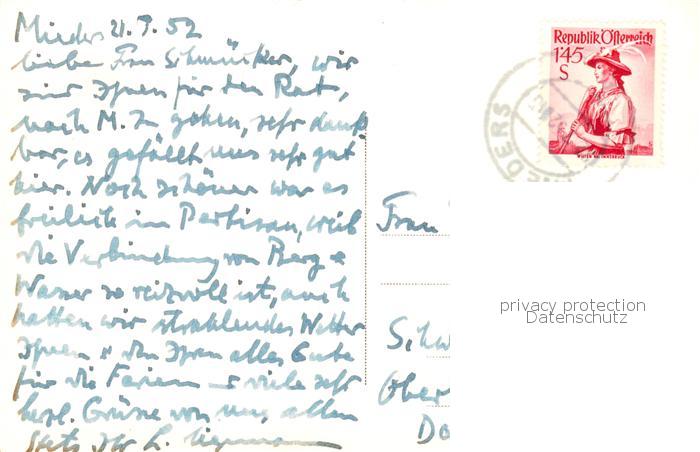 Mieders 21.7.52
Liebe Frau Schmücker, wir
sind Ihnen für den Rat,
nach M. zu gehen, sehr dank-
bar, es gefällt uns sehr gut
hier. Noch schöner war es
freilich im Pertisau, weil
die Verbindung von Berg u
Wasser so reizvoll ist, auch
hatten wir strahlendes Wetter
Ihnen u den Ihren alles Gute
für die Ferien u viele sehr
herzl. Grüsse von uns allen
Stets Ihr L.
Republik Österreich
1'45
S
WILTEN BEI INNSBRUCK
MIEDERS
Frau
Schw
Ober
Do
privacy protection
Datenschutz